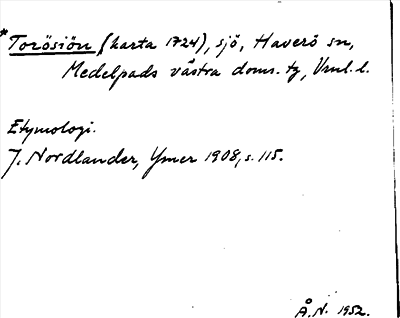 *Torösiön (karta 1724), sjö, Haverö sn,
Medelpads västra doms. tg, Vnl. l.
Etymologi.
J. Nordlander, Ymer 1908, s. 115.
Å.N. 1952.